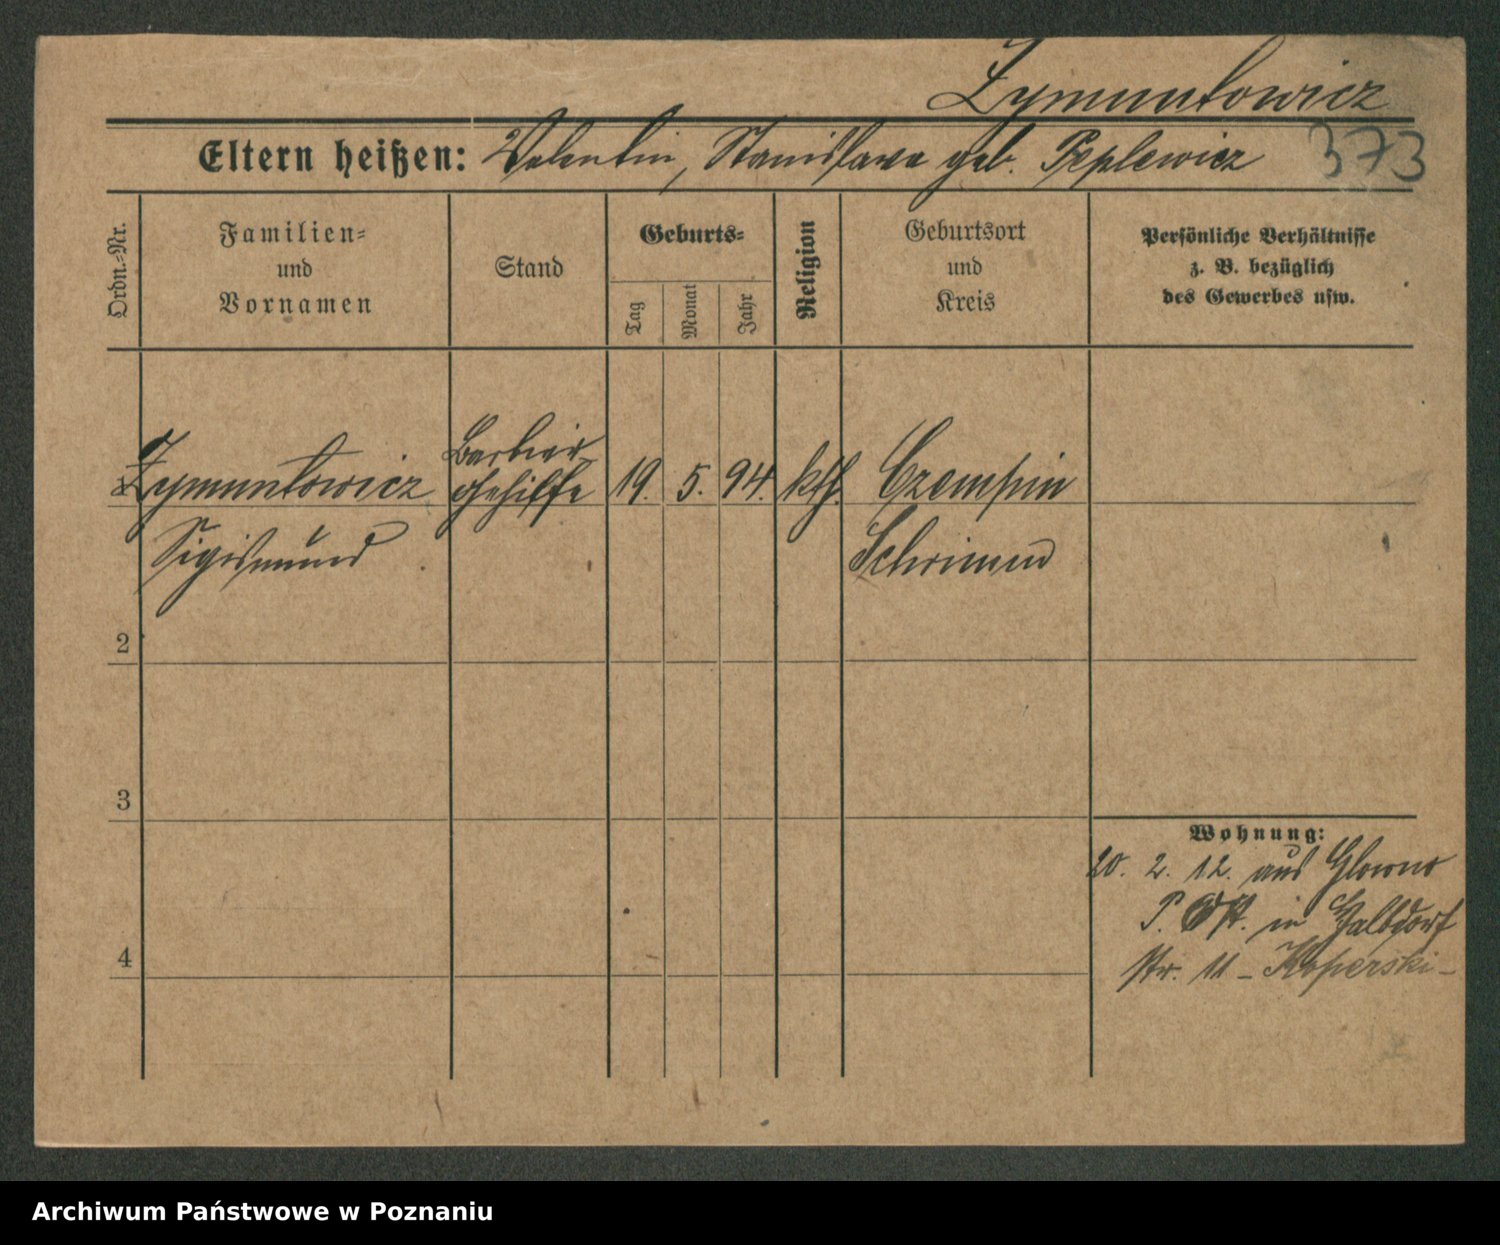 Zymuntowicz
Eltern heißen: Valentin, Stanislawa geb. Peplewicz
373
Ordn.-Nr.
Familien-
und
Vornamen
Stand
Geburts-
Tag
Monat
Jahr
Religion
Geburtsort
und
Kreis
Persönliche Verhältnisse
z. B. bezüglich
des Gewerbes usw.
Zymuntowicz
Sigismund
Barbier
gehilfe
19. 5. 94. kth.
Czempin
Schrimm
2
3
4
Wohnung:
20. 2. 12. aus Glowno
P. Ost. in
str. 11 - Koperski -
Archiwum Państwowe w Poznaniu